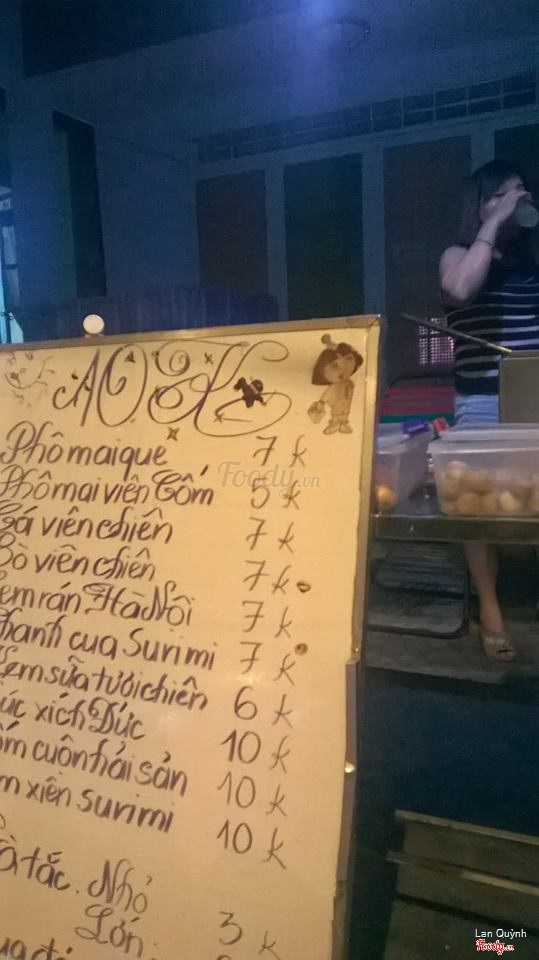 AOK
Phô mai que 7 k
Phô mai viên Cốm 5 k
Cá viên chiên 7 k
Bò viên chiên 7 k
em rán Hà Nội 7 k
hanh cua Surimi 7 k
em sữa tươi chiên 6 k
úc xích Đức 10 k
ôm cuộn hải sản 10 k
m xiên surimi 10 k
à tắc. Nhỏ 3 k
Lớn.
Foody.vn
Lan Quỳnh
Foody.vn